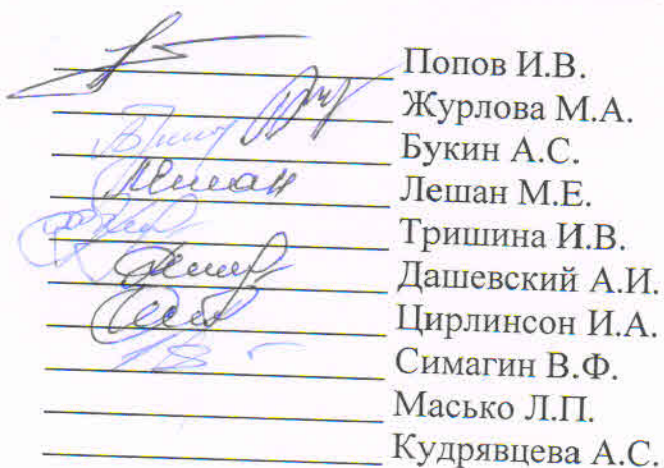 Попов И.В.
Журлова М.А.
Букин А.С.
Лешан М.Е.
Тришина И.В.
Дашевский А.И.
Цирлинсон И.А.
Симагин В.Ф.
Масько Л.П.
Кудрявцева А.С.